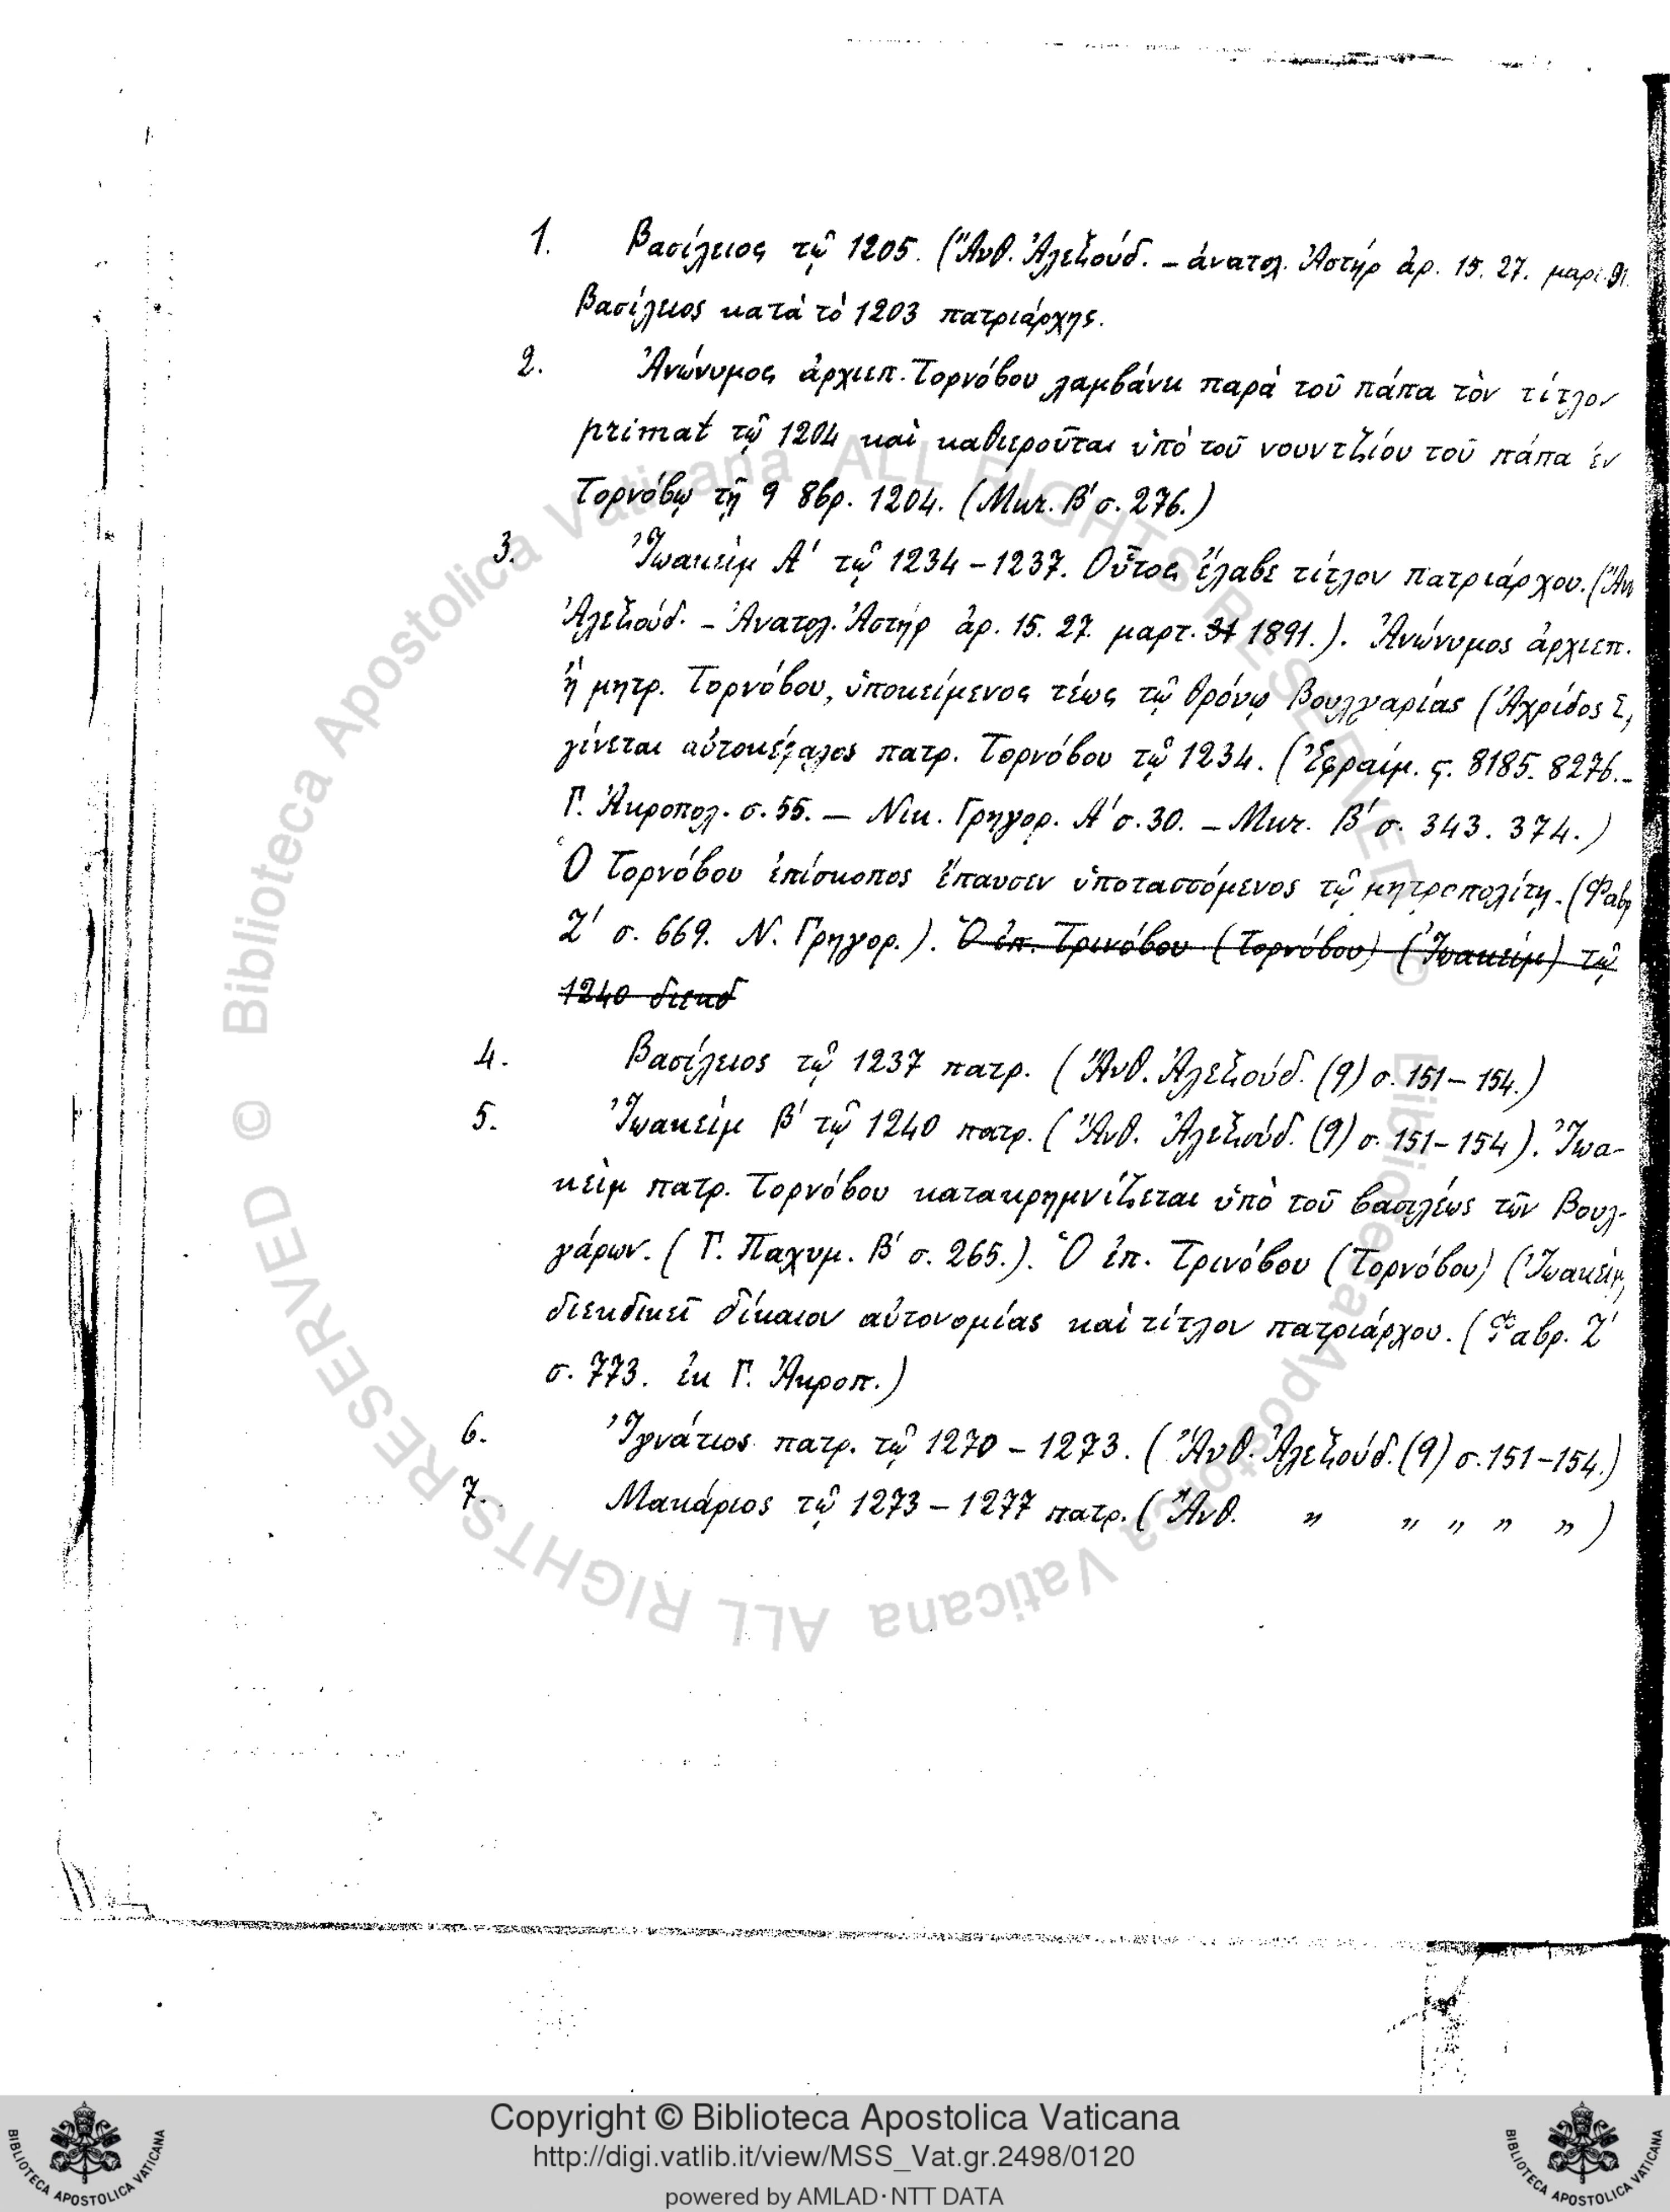 1. Βασίλειος τῷ 1205. (Ἄνθ. Ἀλεξούδ. – ἀνατολ. Ἀστὴρ ἀρ. 15. 27. μαρτ. 91.
Βασίλειος κατὰ τὸ 1203 πατριάρχης.
2. Ἀνώνυμος ἀρχιεπ. Τορνόβου λαμβάνει παρὰ τοῦ πάπα τὸν τίτλον
primat τῷ 1204 καὶ καθιεροῦται ὑπὸ τοῦ νουντζίου τοῦ πάπα ἐν
Τορνόβῳ τῇ 9 8βρ. 1204. (Μικ. Β′ σ. 276.)
3. Ἰωακεὶμ Α′ τῷ 1234 – 1237. Οὗτος ἔλαβε τίτλον πατριάρχου. (Ἄν
Ἀλεξούδ. – Ἀνατολ. Ἀστὴρ ἀρ. 15. 27. μαρτ. 91 1891.). Ἀνώνυμος ἀρχιεπ.
ἢ μητρ. Τορνόβου, ὑποκείμενος τέως τῷ θρόνῳ Βουλγαρίας (Ἀχρίδος),
γίνεται αὐτοκέφαλος πατρ. Τορνόβου τῷ 1234. (Ἐφραίμ. ς. 8185. 8276. –
Γ. Ἀκροπολ. σ. 55. – Νικ. Γρηγορ. Α′ σ. 30. – Μικ. Β′ σ. 343. 374.)
Ὁ Τορνόβου ἐπίσκοπος ἔπαυσεν ὑποτασσόμενος τῷ μητροπολίτῃ. (Φαβρ
Ζ′ σ. 669. Ν. Γρηγορ.). Ὁ ἐπ. Τρινόβου (Τορνόβου) (Ἰωακεὶμ) τῷ
1240 διεκδ
4. Βασίλειος τῷ 1237 πατρ. (Ἄνθ. Ἀλεξούδ. (9) σ. 151 – 154.)
5. Ἰωακεὶμ Β′ τῷ 1240 πατρ. (Ἄνθ. Ἀλεξούδ. (9) σ. 151 – 154). Ἰωα-
κεὶμ πατρ. Τορνόβου κατακρημνίζεται ὑπὸ τοῦ βασιλέως τῶν Βουλ-
γάρων. (Γ. Παχυμ. Β′ σ. 265.). Ὁ ἐπ. Τρινόβου (Τορνόβου) (Ἰωακεὶμ)
διεκδικεῖ δίκαιον αὐτονομίας καὶ τίτλον πατριάρχου. (Φαβρ. Ζ′
σ. 773. ἐκ Γ. Ἀκροπ.)
6. Ἰγνάτιος πατρ. τῷ 1270 – 1273. (Ἄνθ. Ἀλεξούδ. (9) σ. 151 – 154.)
7. Μακάριος τῷ 1273 – 1277 πατρ. (Ἄνθ. „ „ „ „ „)
© Biblioteca Apostolica Vaticana ALL RIGHTS RESERVED © Biblioteca Apostolica Vaticana ALL RIGHTS RESERVED
BIBLIOTECA APOSTOLICA VATICANA
Copyright © Biblioteca Apostolica Vaticana
http://digi.vatlib.it/view/MSS_Vat.gr.2498/0120
powered by AMLAD·NTT DATA
BIBLIOTECA APOSTOLICA VATICANA